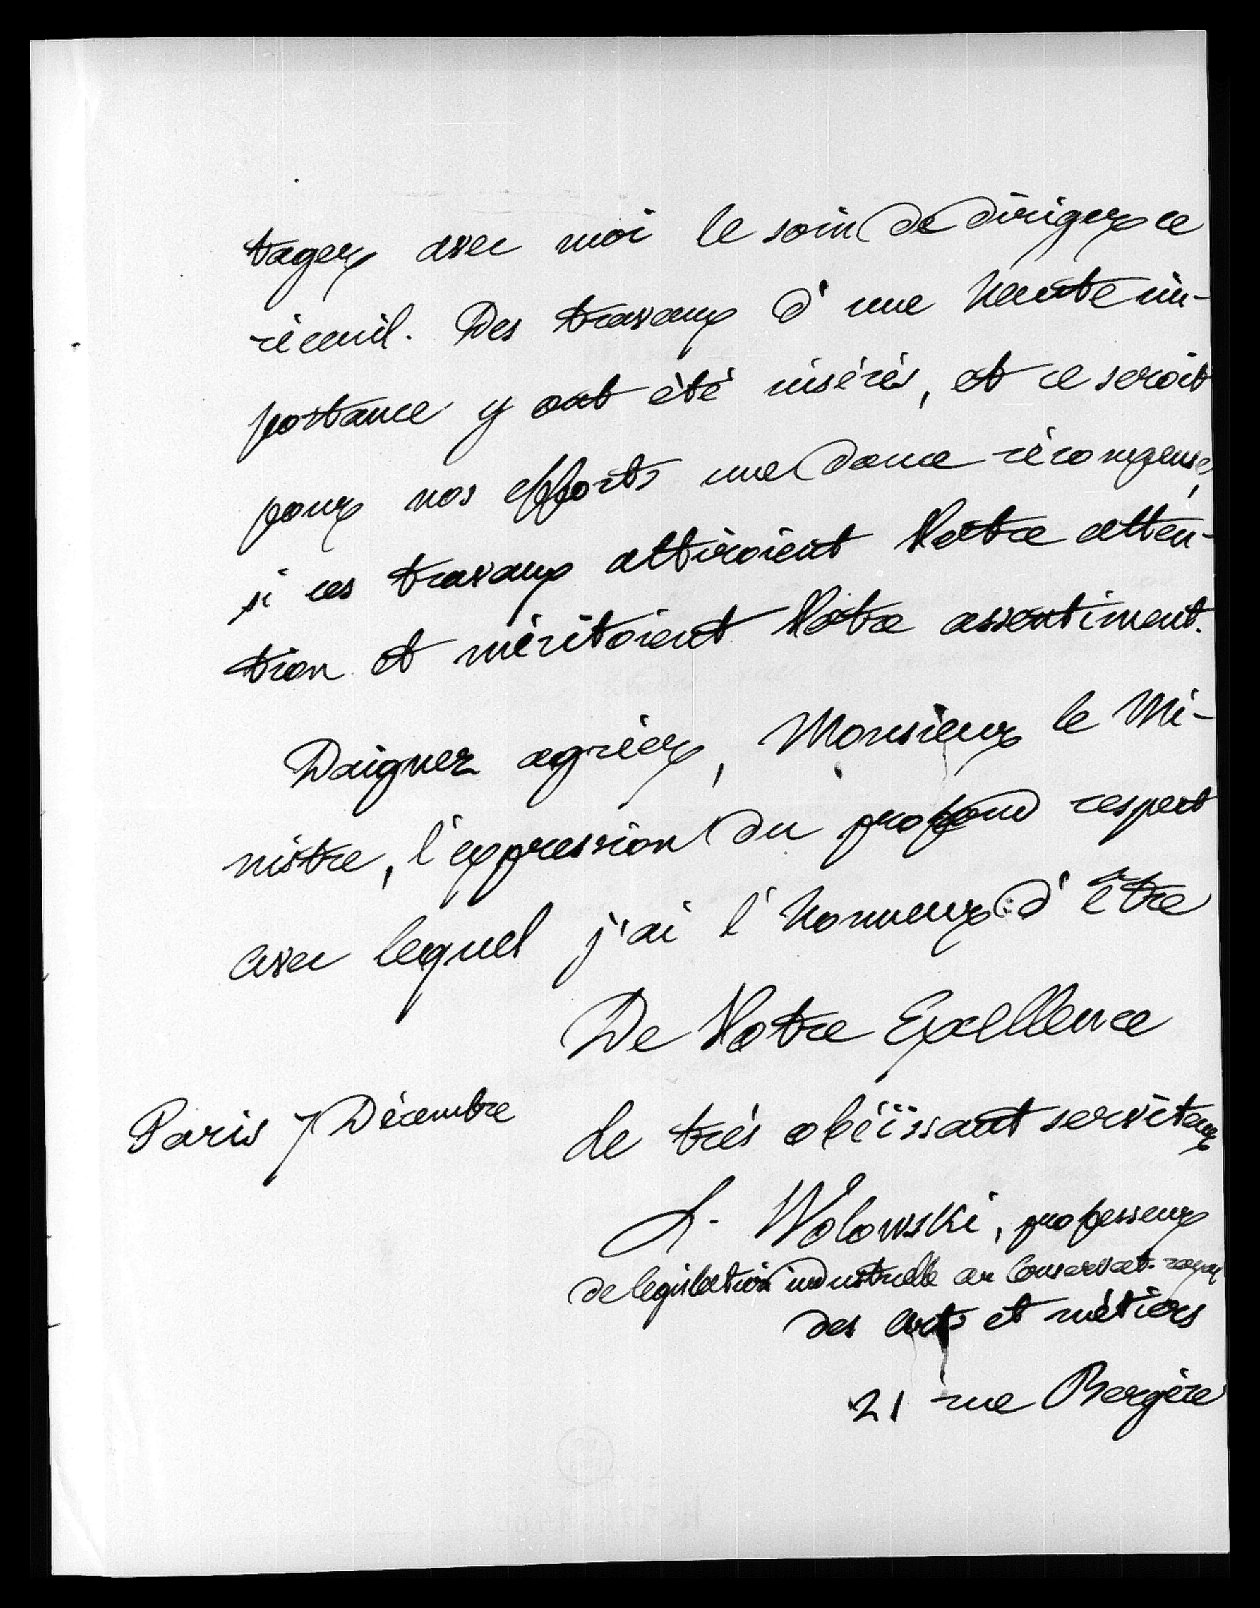 tager avec moi le soin de diriger ce
réceuil. Des travaux d'une haute im-
portance y ont été insérés, et ce seroit
pour nos efforts une douce récompense,
si ces travaux attiroient Votre atten-
tion et méritoient Votre assentiment.
Daignez agréer, Monsieur le Mi-
nistre, l'expression du profond respect
avec lequel j'ai l'honneur d'être
De Votre Excellence
Paris 7 Décembre
le très obéïssant serviteur
L. Wolowski, professeur
de legislation industrielle au Conservat. royal
des arts et métiers
21 rue Bergère